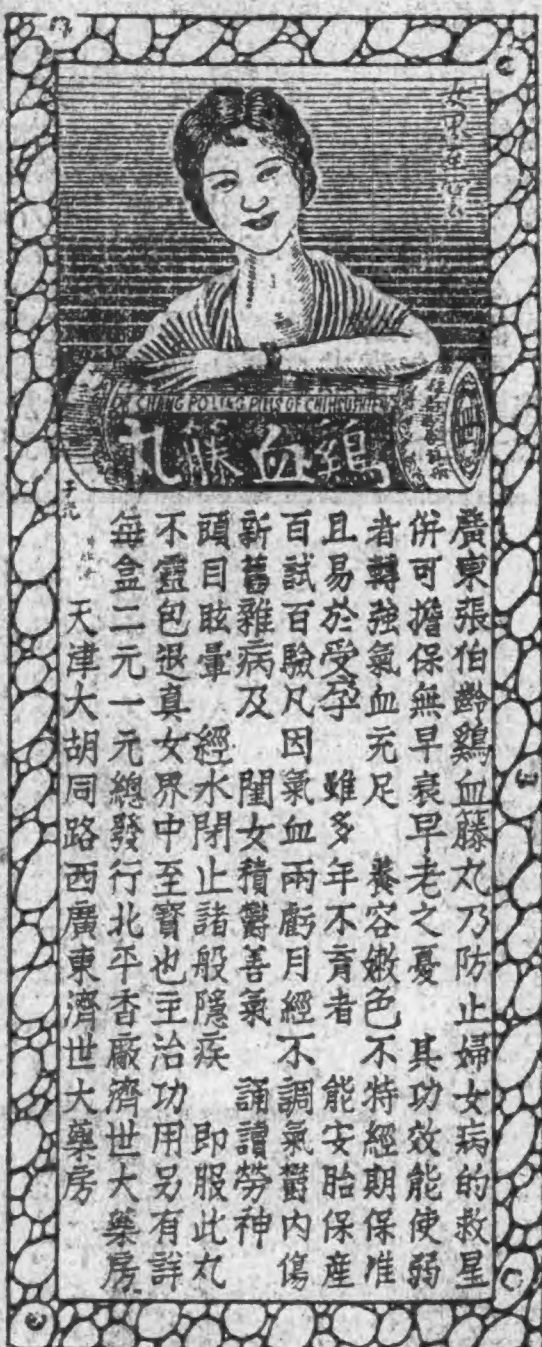 女界至寳
CHANG POLING PILLS OF
鷄血藤丸
廣東張伯齡鷄血籐丸乃防止婦女病的救星
併可擔保無早衰早老之憂　其功效能使弱
者轉強氣血充足　養容嫩色不特經期保准
且易於受孕　雖多年不育者　能安胎保産
百試百驗凡因氣血兩虧月經不調氣鬱內傷
新舊雜病及　閨女積鬱善氣　誦讀勞神
頭目眩暈　經水閉止諸般隱疾　即服此丸
不靈包退真女界中至寳也主治功用另有詳
每盒二元一元總發行北平香廠濟世大藥房
天津大胡同路西廣東濟世大藥房